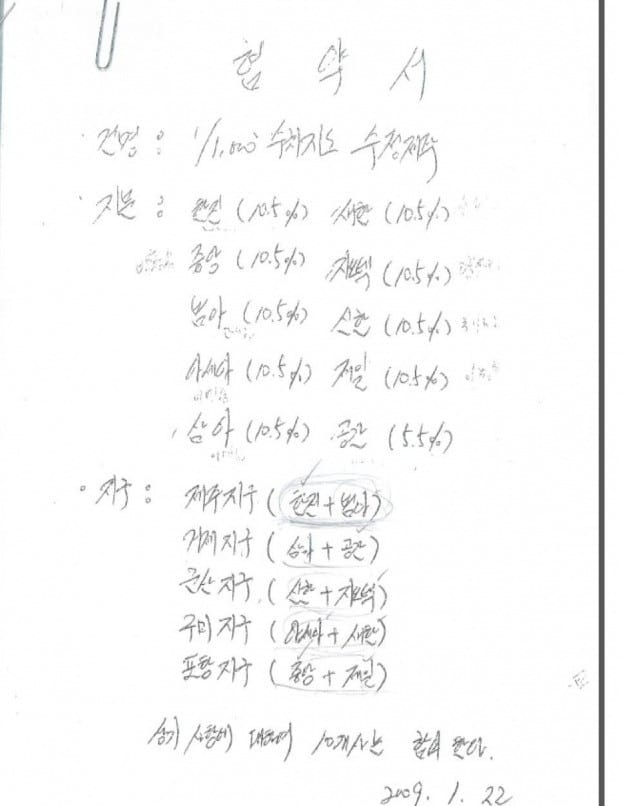 협 약 서
· 건명 : 1/1,000 수치지도 수정제작
· 지분 : 한진 (10.5%) 새한 (10.5%)
중앙 (10.5%) 지오텍 (10.5%)
범아 (10.5%) 신한 (10.5%)
아세아 (10.5%) 제일 (10.5%)
삼아 (10.5%) 공간 (5.5%)
· 지구 : 제주지구 (한진 + 범아)
거제지구 (삼아 + 공간)
군산지구 (신한 + 지오텍)
구미지구 (아세아 + 새한)
포항지구 (중앙 + 제일)
상기 사항에 대하여 10개사는 합의 한다.
2009. 1. 22